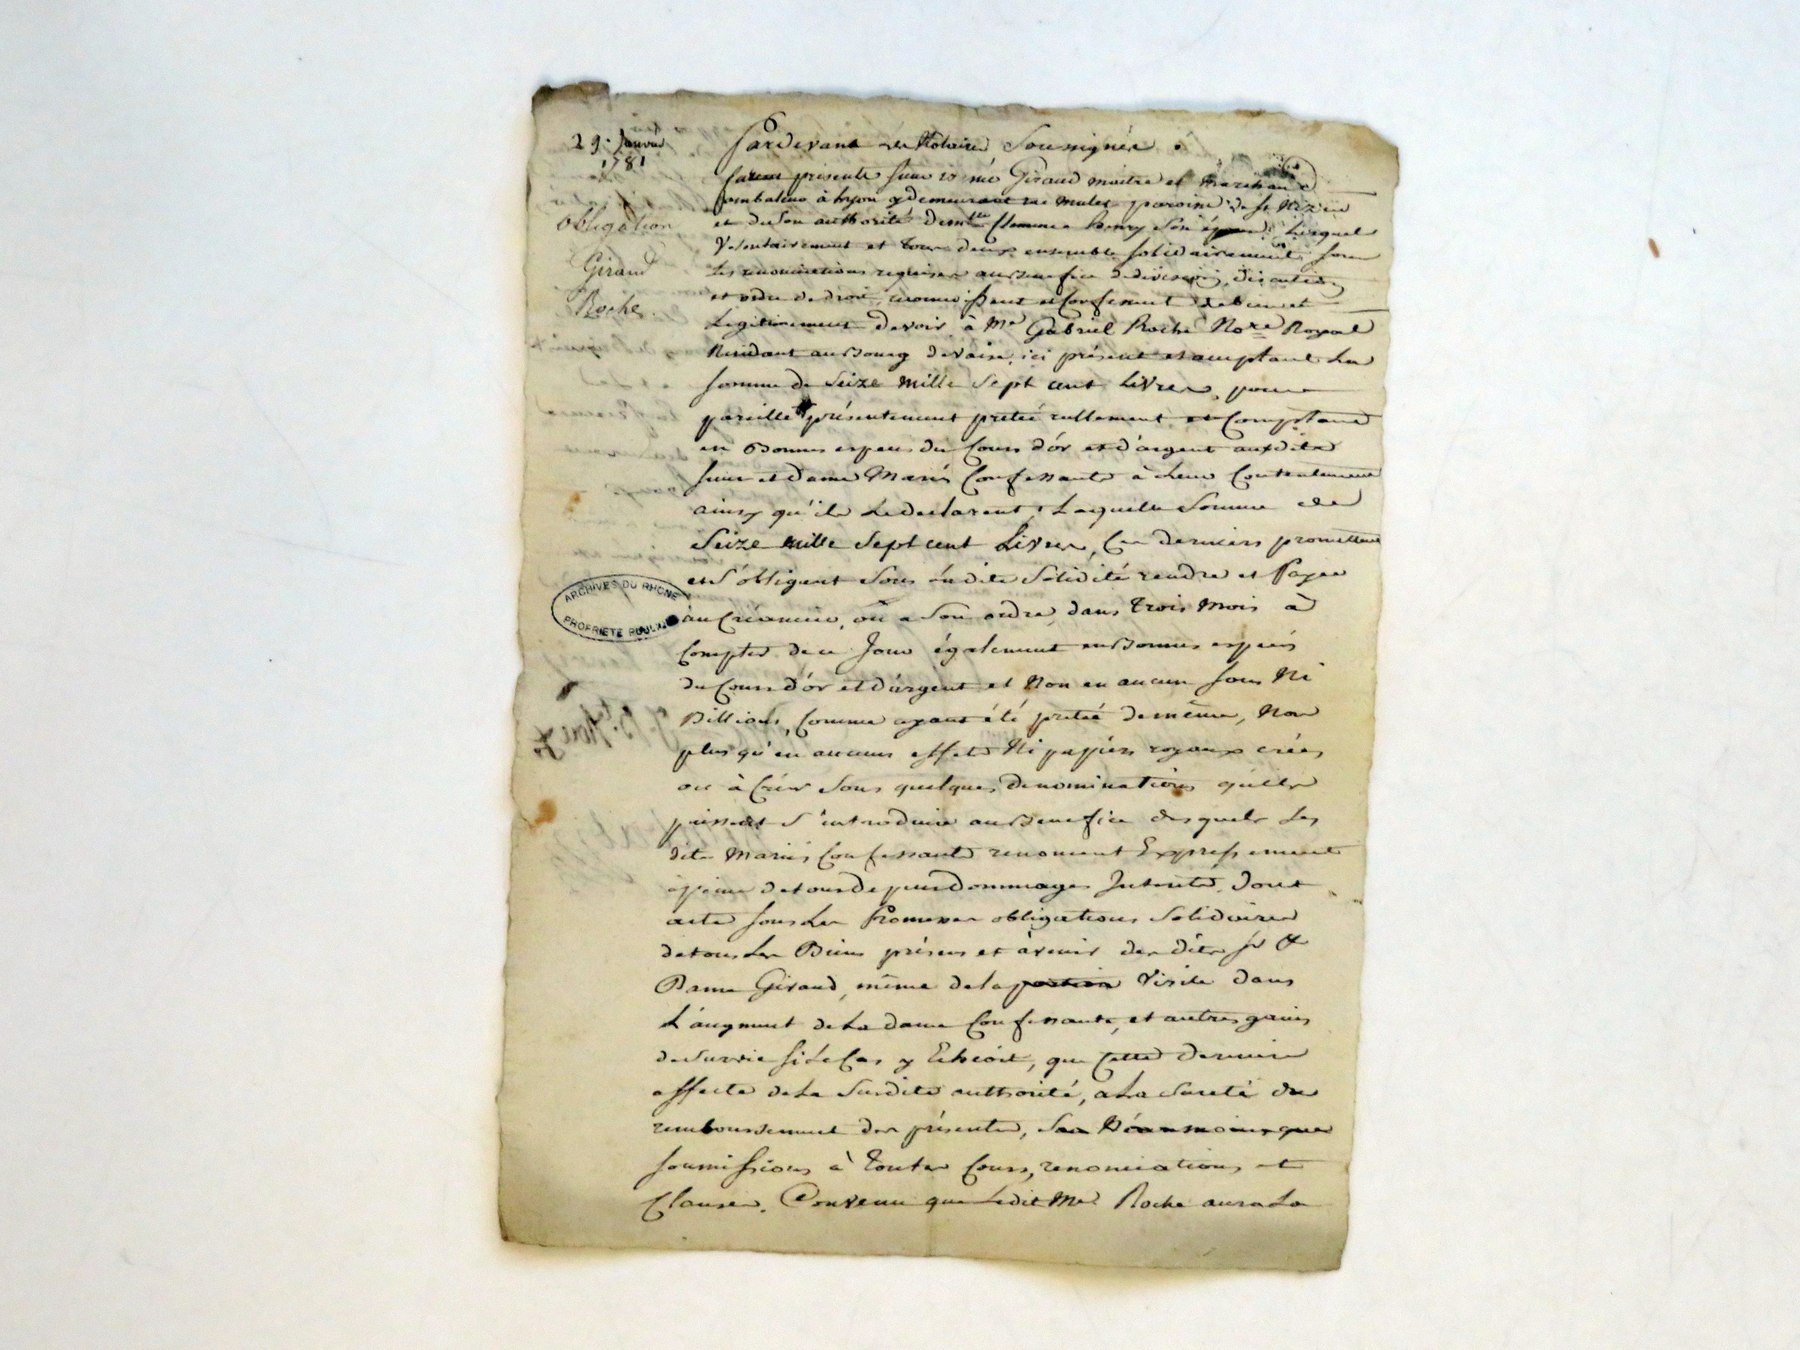 29. Janvier
1781
obligation
Giraud
Roche.
Pardevant les Notaires Soussignés
furent présents sieur Giraud maitre et marchand
à Lyon y demeurant rue Mulet paroisse de St Nizier
et de son authorité Clemence henry son épouse, Lesquels
Volontairement et tous deux ensemble solidairement sous
Les renonciations requises au Benefice de division, discution
et ordre de droit, reconnoissent et Confessent debvoir et
Legitimement devoir à Me Gabriel Roche Nore Royal
Residant au Bourg de Vaise, ici présent et acceptant La
somme de Seize mille Sept cent Livres, pour
pareille présentement pretée reellement et Comptant
en Bonnes especes du Cours d'or et d'argent auxdits
sieur et dame Mariés Confessants à Leur Contentement
ainsy qu'ils Le declarent, Laquelle Somme de
Seize mille Sept cent Livres, Ces derniers promettent
et s'obligent Sous dite Solidité rendre et Payer
au Créancier, ou a Son ordre, dans trois Mois à
Compter de ce Jour également en Bonnes especes
du Cours d'or et d'argent et Non en aucun sous Ni
Billions, Comme ayant été preté de même, Non
plus qu'en aucuns effets Ni papiers royaux créés
ou à Créer Sous quelques denominations qu'ells
puissent s'introduire au Benefice desquels Les
dits Mariés Confessants renoncent Expressement
à peine de tous depens Dommages Interets. dont
acte sous Les Promesses obligations Solidaires
de tous Les Biens présens et à venir des dits sr &
Dame Giraud, même de la portion Virile dans
L'augment de La dame Confessante, et autres gains
de Survie si Le Cas y Echeoit, que Cette derniere
affecte de La Susdite authorité, a La Sureté du
remboursement des présentes,
soumissions à toutes Cours, renonciations et
Clauses. Convenu que Ledit Me Roche aura La
ARCHIVES DU RHONE
PROPRIETE PUBLIQUE